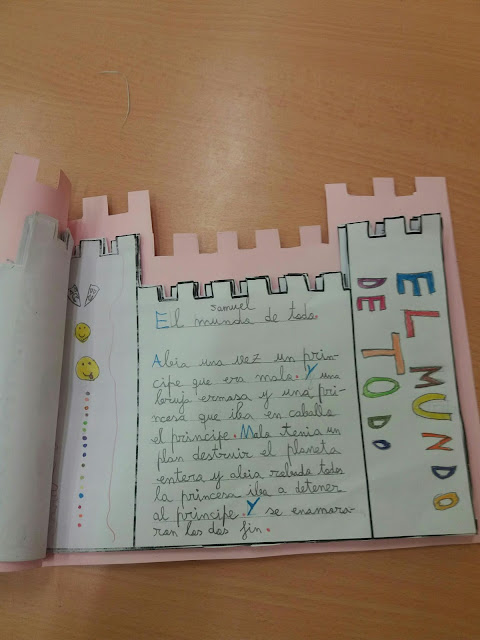 Samuel
El mundo de todo
Abia una vez un prin-
cipe que era malo. Y una
bruja ermosa y una pri-
ncesa que iba en caballo
el principe. Malo tenia un
plan destruir el planeta
entero y abia robado todo
la princesa iba a detener
al principe. Y se enamora-
ron los dos fin.
EL MUNDO
DE TODO